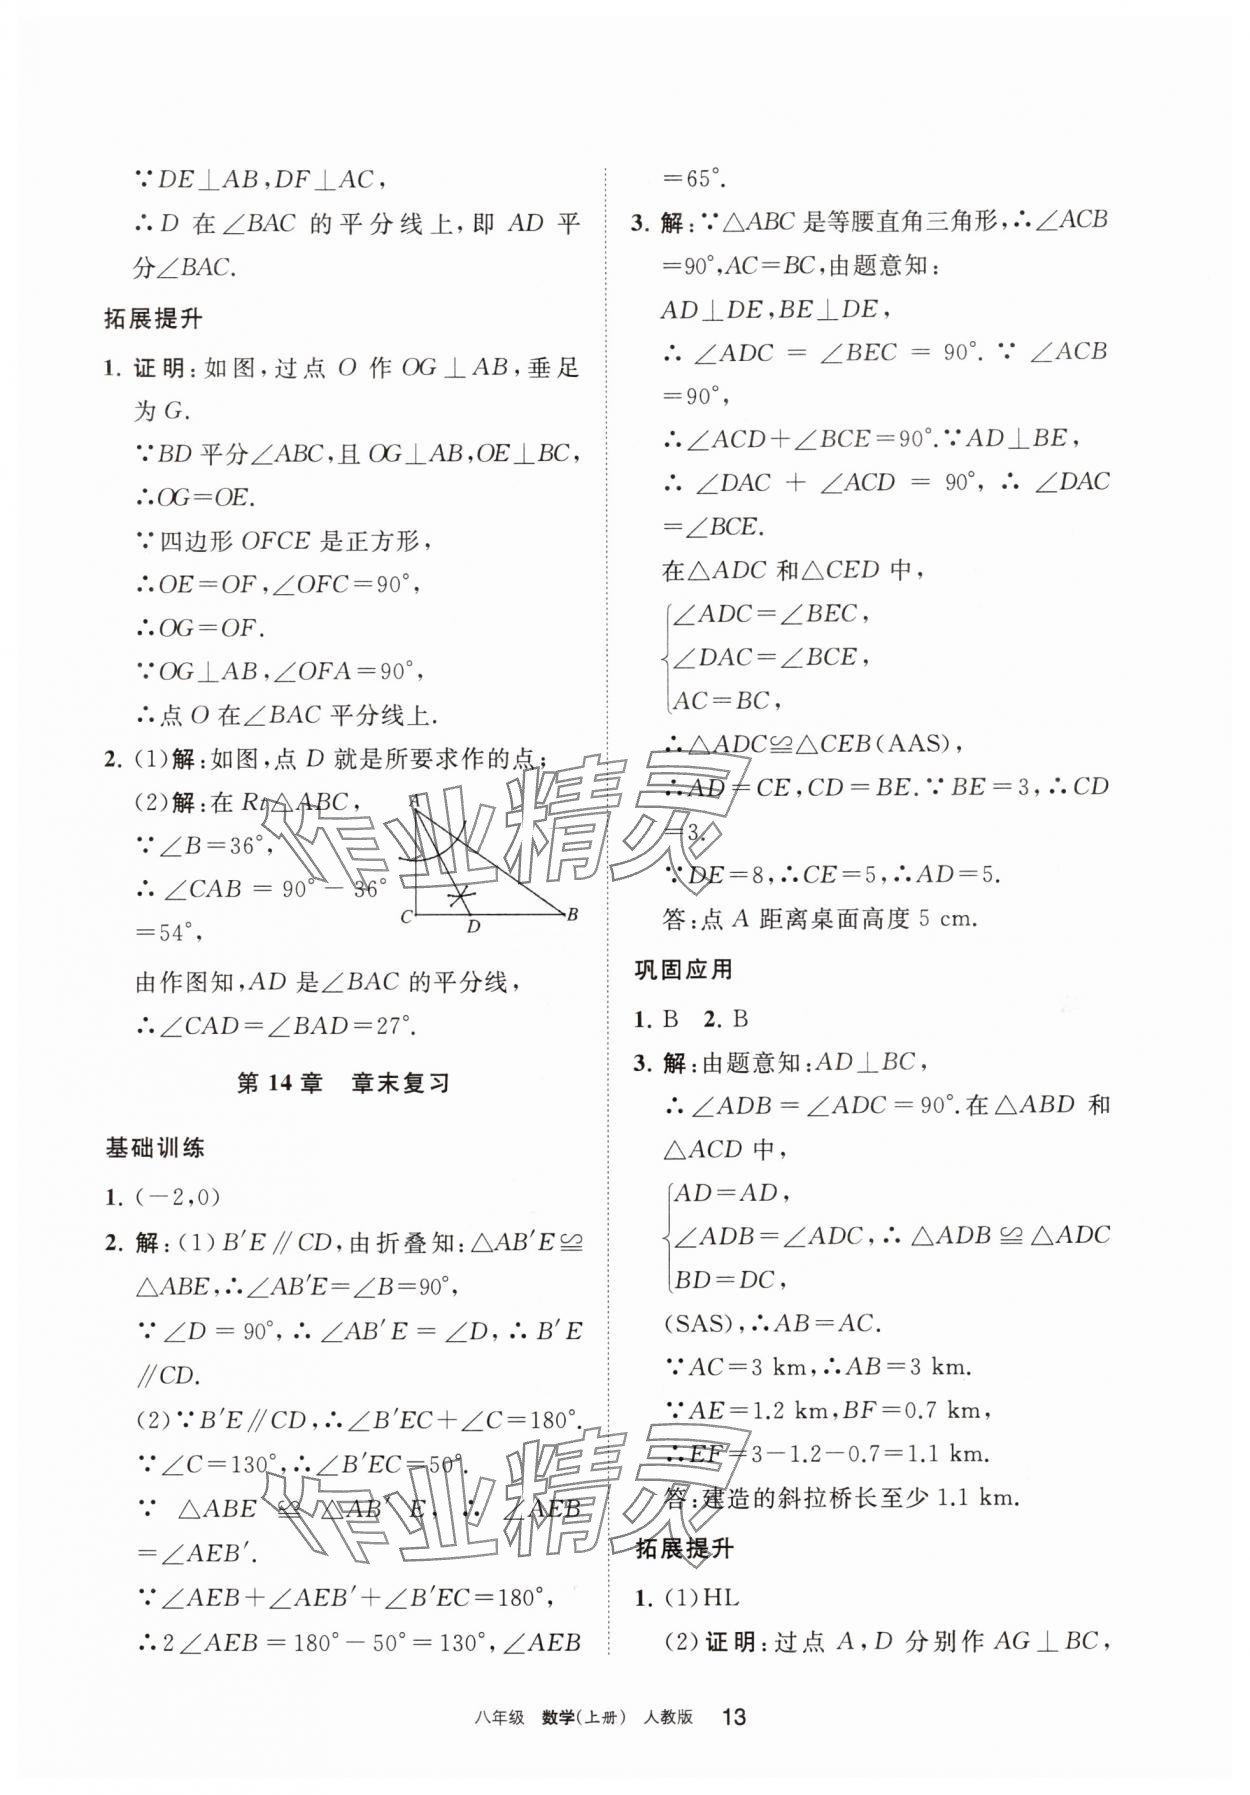 ∵DE⊥AB,DF⊥AC,
∴D 在∠BAC 的平分线上,即 AD 平
分∠BAC.
拓展提升
1. 证明:如图,过点 O 作 OG⊥AB,垂足
为 G.
∵BD 平分∠ABC,且 OG⊥AB,OE⊥BC,
∴OG=OE.
∵四边形 OFCE 是正方形,
∴OE=OF,∠OFC=90°,
∴OG=OF.
∵OG⊥AB,∠OFA=90°,
∴点 O 在∠BAC 平分线上.
2. (1)解:如图,点 D 就是所要求作的点;
(2)解:在 Rt△ABC,
∵∠B=36°,
∴∠CAB=90°-36°
=54°,
A
C
D
B
由作图知,AD 是∠BAC 的平分线,
∴∠CAD=∠BAD=27°.
第 14 章 章末复习
基础训练
1. (-2,0)
2. 解:(1)B′E∥CD,由折叠知:△AB′E≌
△ABE,∴∠AB′E=∠B=90°,
∵∠D=90°,∴∠AB′E=∠D,∴B′E
∥CD.
(2)∵B′E∥CD,∴∠B′EC+∠C=180°.
∵∠C=130°,∴∠B′EC=50°.
∵ △ABE ≌ △AB′E, ∴ ∠AEB
=∠AEB′.
∵∠AEB+∠AEB′+∠B′EC=180°,
∴2∠AEB=180°-50°=130°,∠AEB
=65°.
3. 解:∵△ABC 是等腰直角三角形,∴∠ACB
=90°,AC=BC,由题意知:
AD⊥DE,BE⊥DE,
∴∠ADC=∠BEC=90°.∵∠ACB
=90°,
∴∠ACD+∠BCE=90°.∵AD⊥BE,
∴∠DAC+∠ACD=90°,∴∠DAC
=∠BCE.
在△ADC 和△CED 中,
∠ADC=∠BEC,
∠DAC=∠BCE,
AC=BC,
∴△ADC≌△CEB(AAS),
∴AD=CE,CD=BE.∵BE=3,∴CD
=3.
∵DE=8,∴CE=5,∴AD=5.
答:点 A 距离桌面高度 5 cm.
巩固应用
1. B 2. B
3. 解:由题意知:AD⊥BC,
∴∠ADB=∠ADC=90°.在△ABD 和
△ACD 中,
AD=AD,
∠ADB=∠ADC,∴△ADB≌△ADC
BD=DC,
(SAS),∴AB=AC.
∵AC=3 km,∴AB=3 km.
∵AE=1.2 km,BF=0.7 km,
∴EF=3-1.2-0.7=1.1 km.
答:建造的斜拉桥长至少 1.1 km.
拓展提升
1. (1)HL
(2)证明:过点 A,D 分别作 AG⊥BC,
八年级 数学(上册) 人教版 13
作业精灵
作业精灵